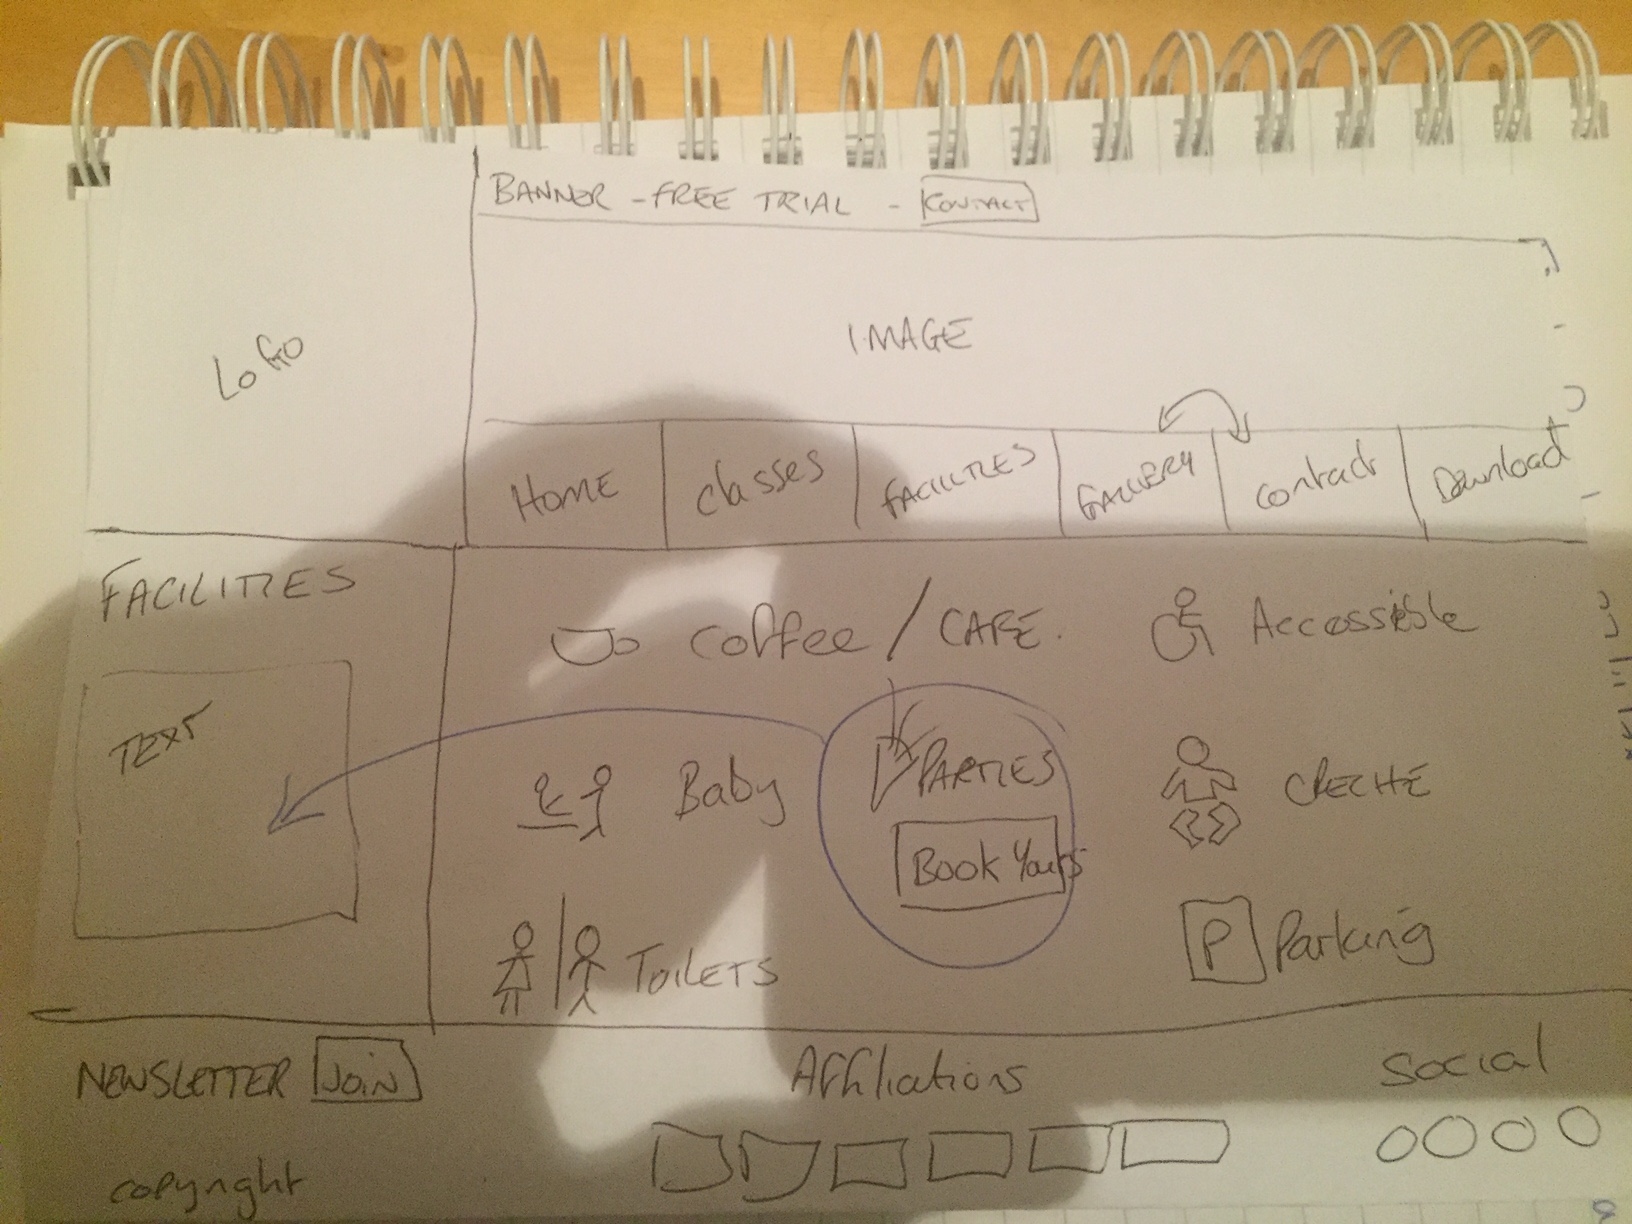 BANNER - FREE TRIAL - CONTACT
LOGO
IMAGE
HOME
Classes
FACILITIES
GALLERY
Contact
Download
FACILITIES
TEXT
Coffee / CAFE.
Accessible
Baby
PARTIES
Book Yours
CRECHE
TOILETS
P Parking
NEWSLETTER JOIN
Affiliations
Social
copyright